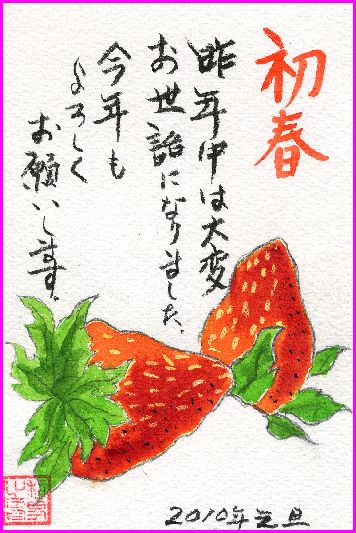 初春
昨年中は大変
お世話になりました。
今年も
よろしく
お願いします。
2010年元旦